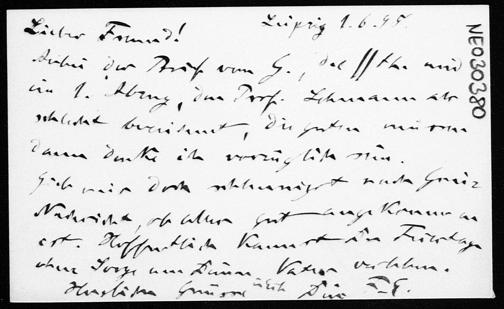 Leipzig 1.6.95.
Lieber Freund!
Anbei der Brief vom G., des
im 1. den Prof. Lehmann als
schlecht bezeichnet, die guten müssen
dann denke ich vorzüglich sein.
Gieb mir doch schleunigst nach Greiz
Nachricht, ob alles gut angekommen
ist. Hoffentlich kannst Du Feiertage
ohne Sorge um Deinen Vater verleben.
Herzlichen Gruss Dein
NE030380